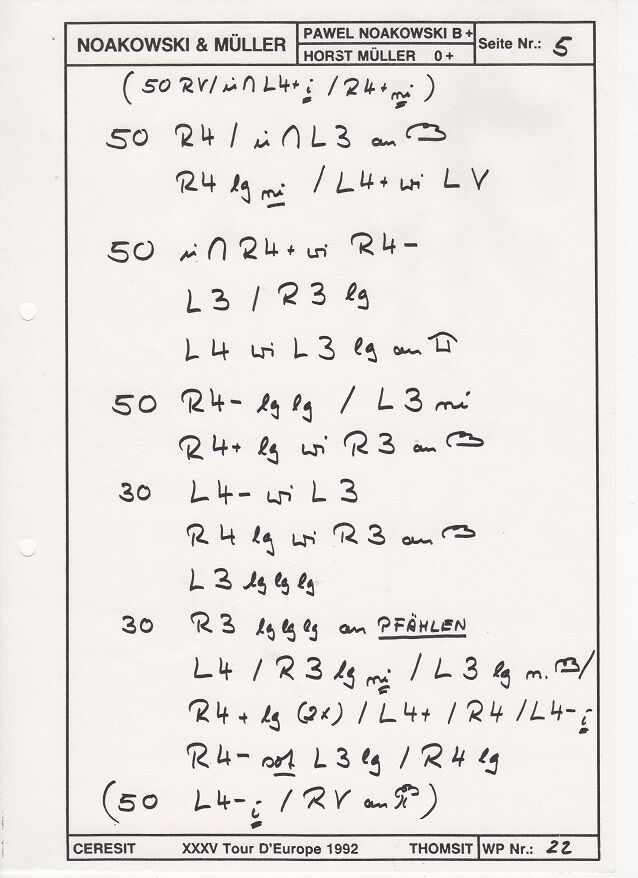 NOAKOWSKI & MÜLLER
PAWEL NOAKOWSKI B+
HORST MÜLLER 0+
Seite Nr.: 5
(50 RV/ in ∩ L4+ i / R4+ ni)
50 R4 / in ∩ L3 an
R4 lg ni / L4+ wi LV
50 in ∩ R4+ wi R4-
L3 / R3 lg
L4 wi L3 lg an
50 R4- lg lg / L3 ni
R4+ lg wi R3 an
30 L4- wi L3
R4 lg wi R3 an
L3 lg lg lg
30 R3 lg lg lg an PFÄHLEN
L4 / R3 lg ni / L3 lg n. /
R4+ lg (2x) / L4+ / R4 / L4- i
R4- sof L3 lg / R4 lg
(50 L4- i / RV an )
CERESIT XXXV Tour D'Europe 1992 THOMSIT WP Nr.: 22